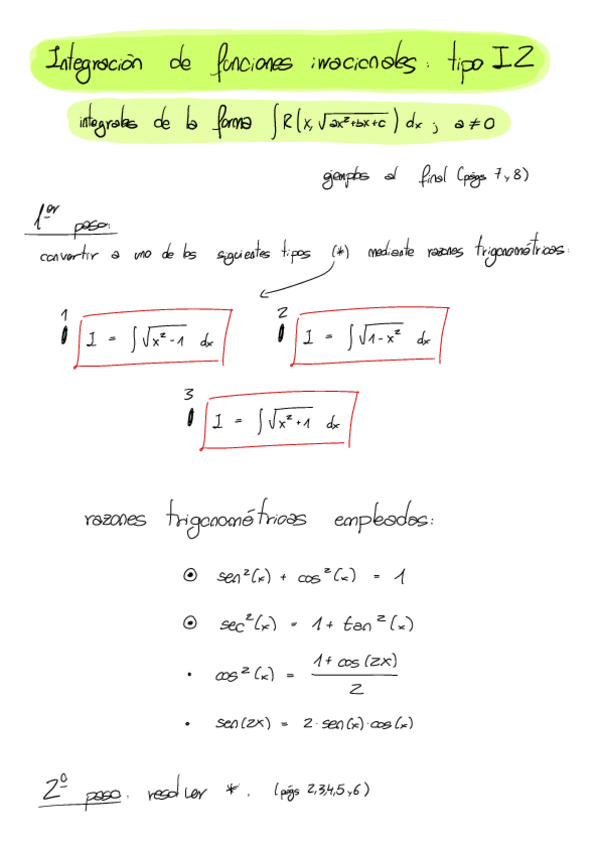 Integración de funciones irracionales: tipo I2
integrales de la forma ∫R(x,√ax²+bx+c) dx ; a≠0
ejemplos al final (págs 7 y 8)
1er paso:
convertir a uno de los siguientes tipos (*) mediante razones trigonométricas:
1 2
I = ∫√x²-1 dx I = ∫√1-x² dx
3
I = ∫√x²+1 dx
razones trigonométricas empleadas:
sen²(x) + cos²(x) = 1
sec²(x) = 1 + tan²(x)
• cos²(x) = 1+cos(2x)
2
• sen(2x) = 2·sen(x)·cos(x)
2º paso: resolver *. (págs 2,3,4,5 y 6)